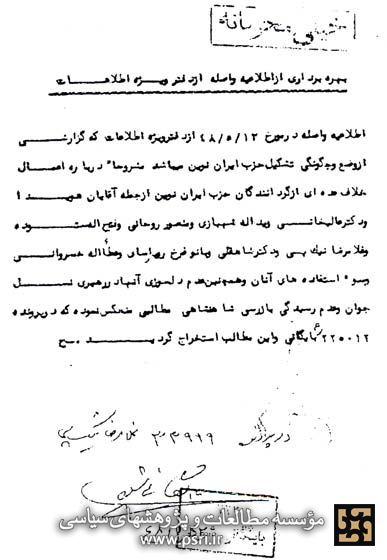 خیلی محرمانه
بهره برداری از اطلاعیه واصله از دفتر ویژه اطلاعات
اطلاعیه واصله در مورخ ۴۸/۵/۱۲ از دفتر ویژه اطلاعات که گزارشی
از وضع و چگونگی تشکیل حزب ایران نوین میباشد مشروحا" درباره اعمال
خلاف عده ای از گردانندگان حزب ایران نوین از جمله آقایان هویدا
ودکتر عالیخانی و یداله شهبازی و منصور روحانی و فتح اله ستوده
و غلامرضا نیک پی و دکتر شاهقلی و بانو فرخ رو پارسای و عطأاله خسروانی
وسوء استفاده های آنان و همچنین عدم دلسوزی آنها در رهبری نسل
جوان و عدم رسیدگی بازرسی شاهنشاهی مطالبی منعکس نموده که در پرونده
۲۲۵۰۱۲ بایگانی و این مطالب استخراج گردید . ح
در پرونده ۳۳۹۹۹ غلامرضا نیک پی
بایگانی
مؤسسه مطالعات و پژوهشهای سیاسی
www.psri.ir